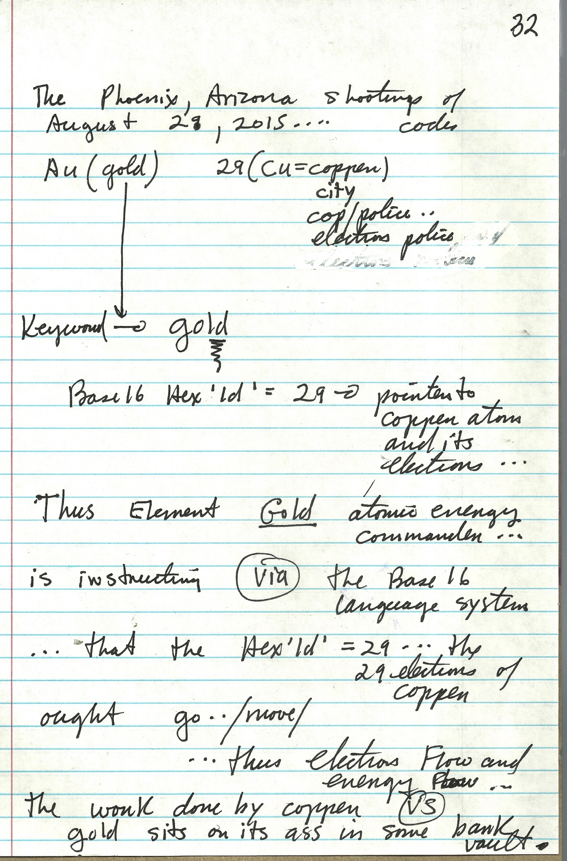 32
The Phoenix, Arizona shootings of
August 29, 2015.... codes
Au (gold) 29 (Cu=copper)
city
cop/police ..
electron police
Keyword → gold
Base 16 Hex 'ld' = 29 → pointer to
copper atom
and its
electrons ...
Thus Element Gold atomic energy
commander ...
is instructing via the Base 16
language system
... that the Hex 'ld' = 29 ... the
29 electrons of
copper
ought go.. /move/
... thus electron Flow and
energy flow ...
the work done by copper VS
gold sits on its ass in some bank
vault.